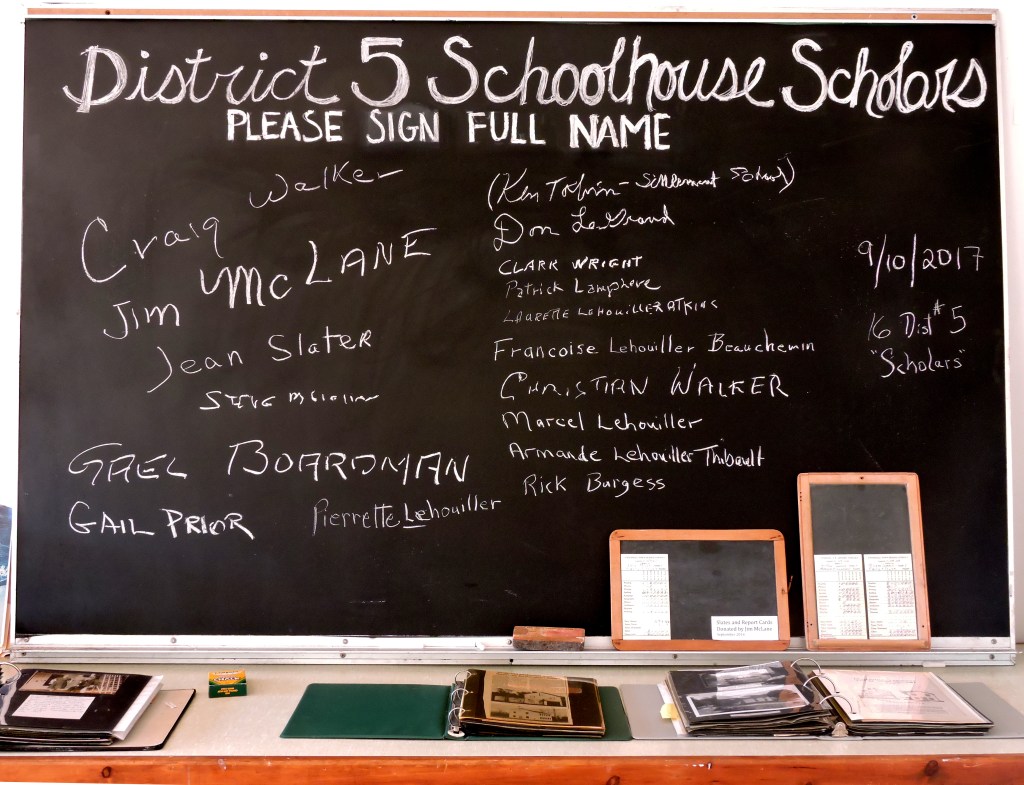 District 5 Schoolhouse Scholars
PLEASE SIGN FULL NAME
Craig Walker
Jim McLANE
Jean Slater
STEVE
GAEL BOARDMAN
GAIL PRIOR
Pierrette Lehouiller
(Ken
Don LeGrand
CLARK WRIGHT
Patrick Lamphere
LAURETTE LEHOUILLER ATKINS
Francoise Lehouiller Beauchemin
CHRISTIAN WALKER
Marcel Lehouiller
Armande Lehouiller Thibault
Rick Burgess
9/10/2017
16 Dist #5
"Scholars"
Slates and Report Cards
Donated by Jim McLane